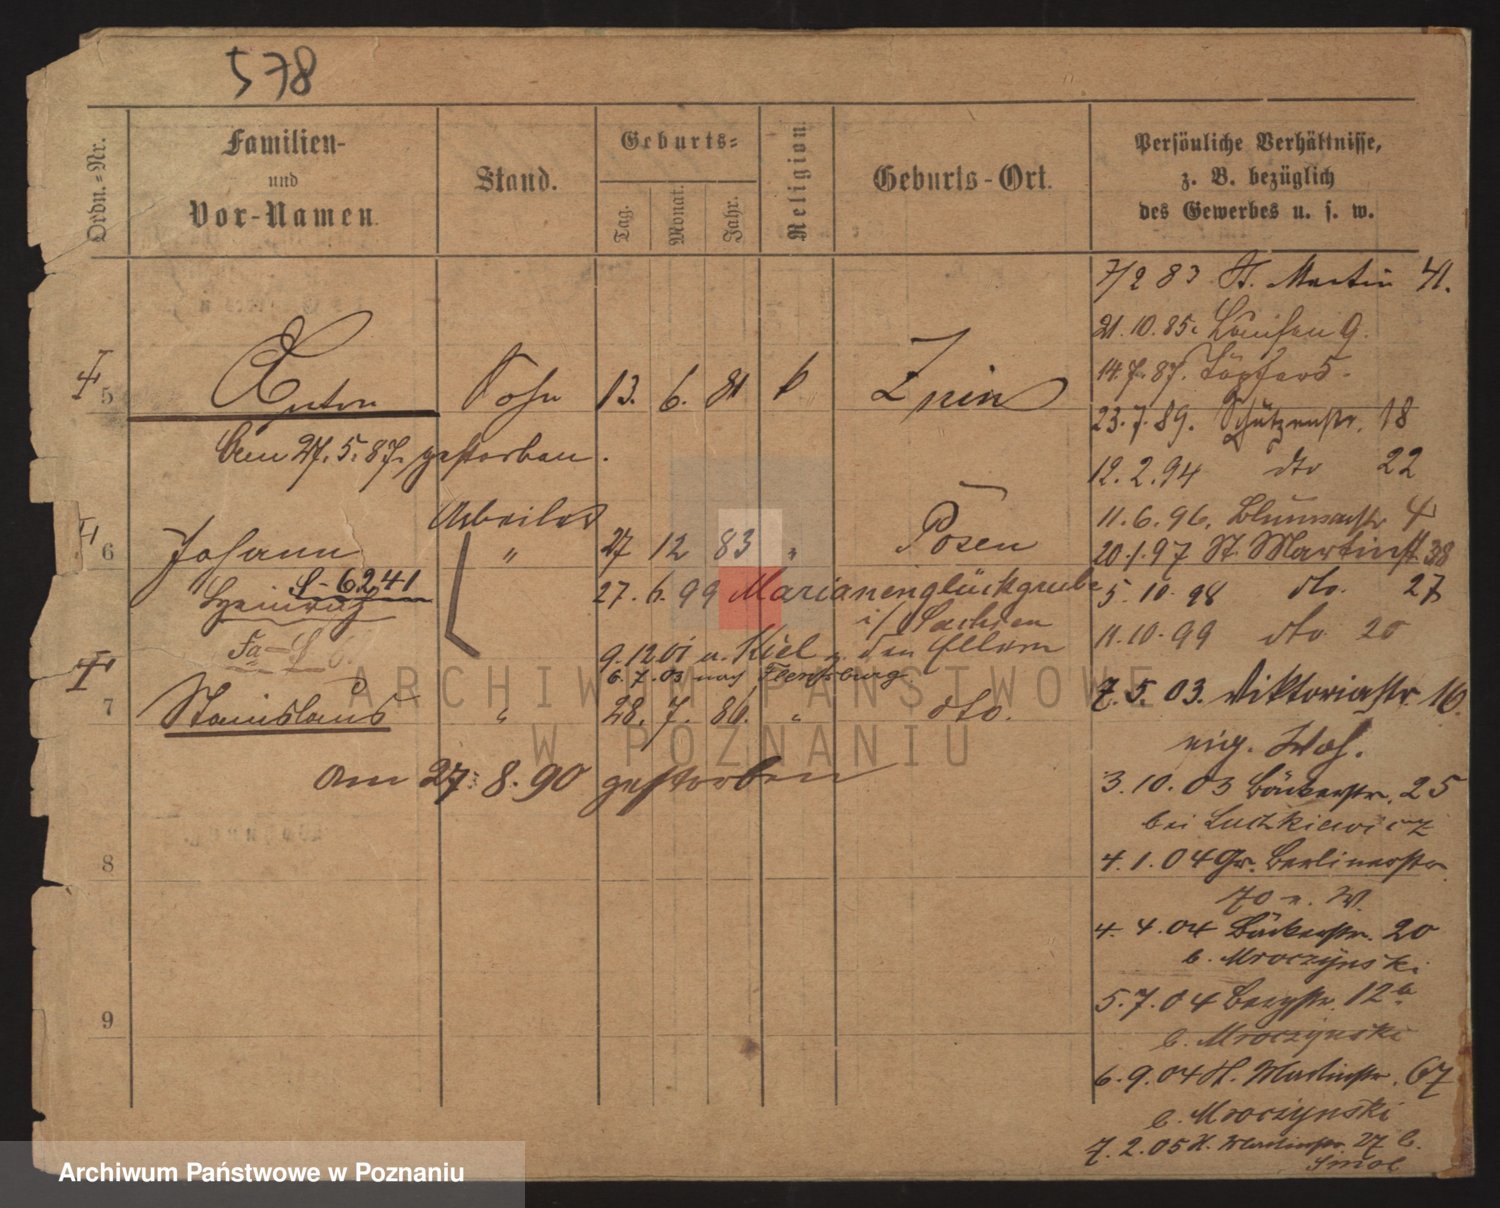 578
Ordn.-Nr.
Familien-
und
Vor-Namen.
Stand.
Geburts-
Tag.
Monat.
Jahr.
Religion.
Geburts-Ort.
Persönliche Verhältnisse,
z. B. bezüglich
des Gewerbes u. s. w.
5 Anton Sohn 13. 6. 81 k Znin
Am 27. 5. 87. gestorben.
Arbeiter
6 Johann " 27 12 83 " Posen
S-6241
27. 6. 99 Marianenglückgrube
i/Sachsen
9.12.01 u. Kiel z. den Eltern
6. 7. 03 nach Flensburg.
7 Stanislaus " 28. 7. 86. " dto.
Am 27. 8. 90 gestorben
8
9
7/2 83 St. Martin 41.
21. 10. 85. Louisen 9.
14. 7. 87. Töpfer 5.
23. 7. 89. Schützenstr. 18
12. 2. 94 dto 22
11. 6. 96. Blumenstr 4
20. 1. 97 St. Martinst 38
5. 10. 98 dto. 27
11. 10. 99 dto 20
7. 5. 03. Viktoriastr. 10.
eig. Woh.
3. 10. 03 Bäckerstr. 25
bei Luczkiewicz
4. 1. 04 Gr. Berlinerstr.
70 e. W.
4. 4. 04 Bäckerstr. 20
b. Mroczynski
5. 7. 04 Bergstr. 12a
b. Mroczynski
6. 9. 04 St. Martinstr. 67
b. Mroczynski
7. 2. 05 St. Martinstr 27 b.
ARCHIWUM PAŃSTWOWE
W POZNANIU
Archiwum Państwowe w Poznaniu